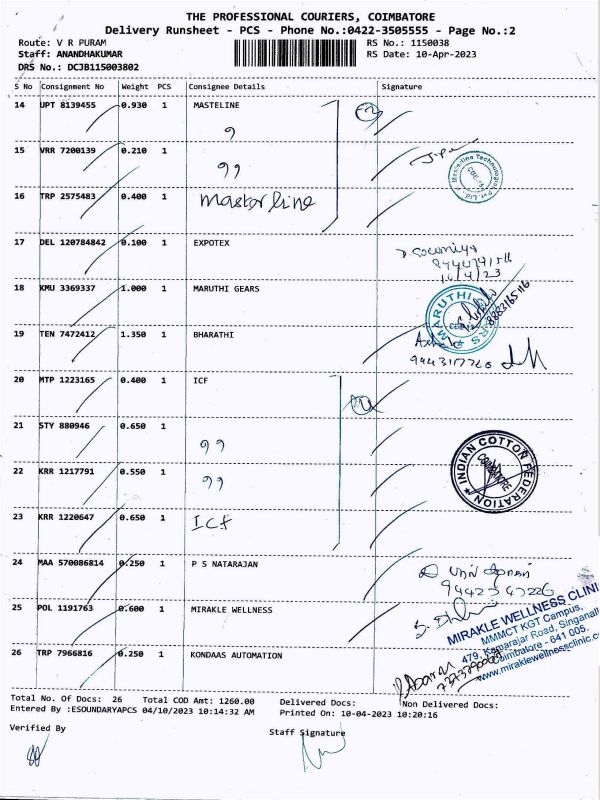 THE PROFESSIONAL COURIERS, COIMBATORE
Delivery Runsheet - PCS - Phone No.:0422-3505555 - Page No.:2
Route: V R PURAM
RS No.: 1150038
Staff: ANANDHAKUMAR
RS Date: 10-Apr-2023
DRS No.: DCJB115003802
S No Consignment No Weight PCS Consignee Details Signature
14 UPT 8139455 0.930 1 MASTELINE
15 VRR 7200139 0.210 1
Maste-line Technologies Pvt. Ltd.
16 TRP 2575483 0.400 1 masterline
17 DEL 120784842 0.100 1 EXPOTEX
Sowmiya
10/4/23
18 KMU 3369337 1.000 1 MARUTHI GEARS
MARUTHI GEARS
8883165116
19 TEN 7472412 1.350 1 BHARATHI
20 MTP 1223165 0.400 1 ICF
21 STY 880946 0.650 1
22 KRR 1217791 0.550 1
INDIAN COTTON FEDERATION
COIMBATORE
23 KRR 1220647 0.650 1 ICF
24 MAA 570086814 0.250 1 P S NATARAJAN
25 POL 1191763 0.600 1 MIRAKLE WELLNESS
MIRAKLE WELLNESS CLINIC
MMMCT KGT Campus,
479, Kamarajar Road, Singanall
Coimbatore - 641 005.
www.miraklewellnessclinic.c
26 TRP 7966816 0.250 1 KONDAAS AUTOMATION
Total No. Of Docs: 26 Total COD Amt: 1260.00 Delivered Docs: Non Delivered Docs:
Entered By :ESOUNDARYAPCS 04/10/2023 10:14:32 AM Printed On: 10-04-2023 10:20:16
Verified By
Staff Signature